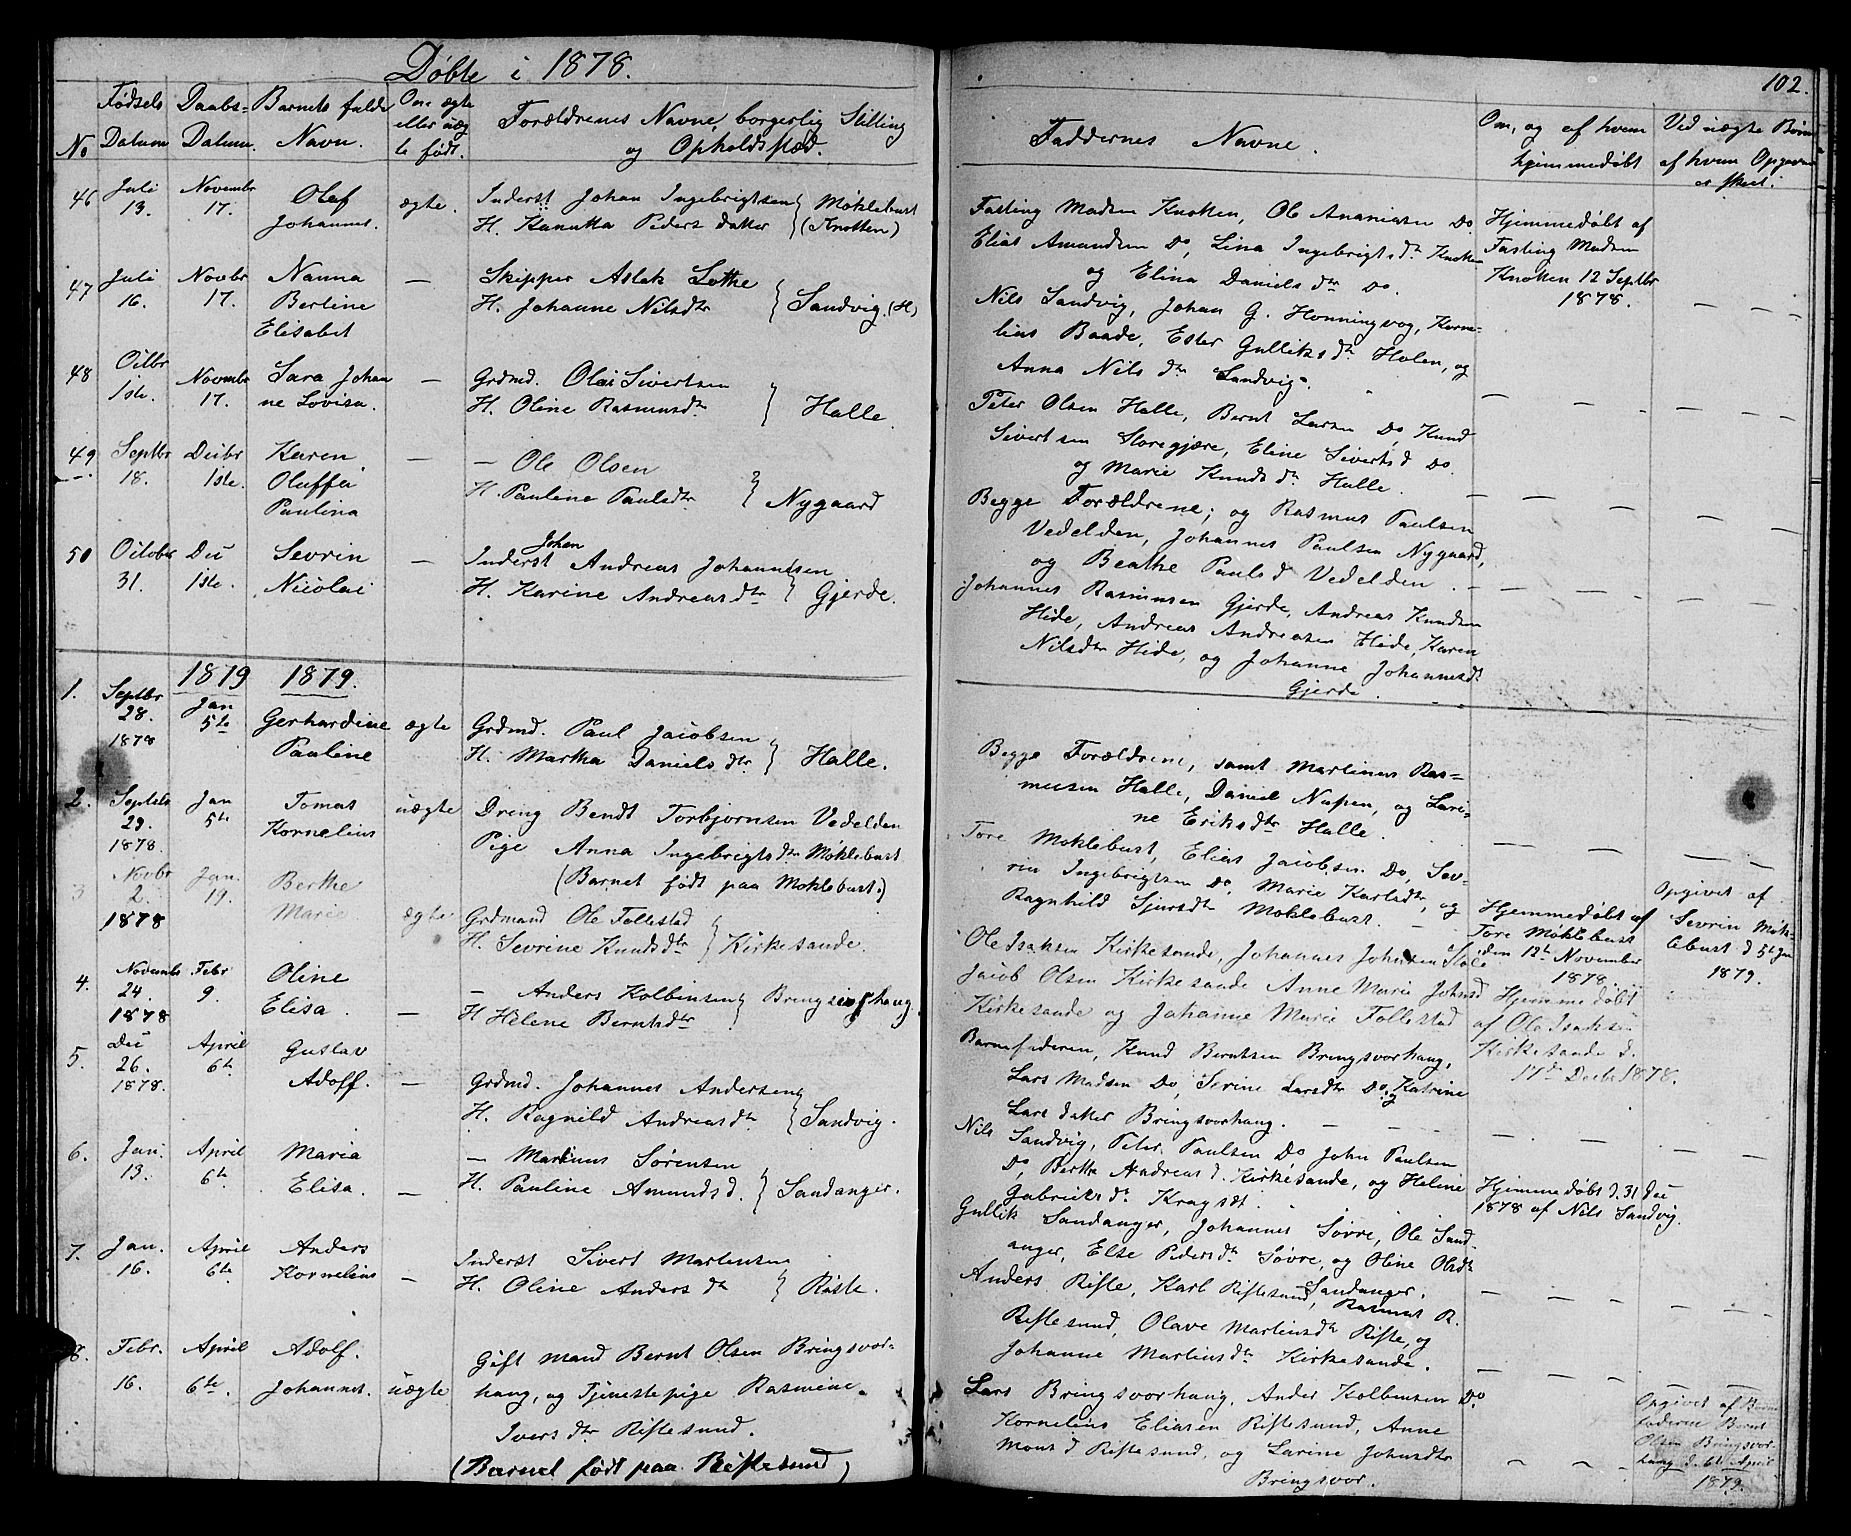 Døbte i 1878.
No
Fødsels Datum
Daabs- Datum.
Barnets fulde Navn.
Om ægte eller uæg te født.
Forældrenes Navne, borgerlig Stilling
og Opholdssted.
46 Juli 13. Novembr 17. Olaf Johannes. ægte.
Inderst Johan Ingebrigtsen } Møklebust
H. Hanukka Peders datter } (Knotten)
47 Juli 16. Novbr 17. Nanna Bertine Elisabet —
Skipper Aslak Lothe
H. Johanne Nilsdtr } Sandvig. (H)
48 Octbr 1ste. Novembr 17. Sara Johan ne Lovisa. —
Grdmd. Olai Sivertsen
H. Oline Rasmusdtr } Halle.
49 Septbr 18. Decbr 1ste. Karen Oluffa Paulina —
— Ole Olsen
H. Pauline Paulsdtr } Nygaard
50 October 31. Dec 1ste. Sevrin Nicolai —
Johan
Inderst Andreas Johannesen
H. Karine Andreasdtr } Gjerde.
1879 1879.
1. Septbr 28. 1878 Jan 5te Gerhardine Pauline ægte
Grdmd. Paul Jacobsen
H. Martha Daniels dtr } Halle.
2. Septbr 29. 1878. Jan 5te Tomas Kornelius uægte
Dreng Bendt Torbjørnsen Vedelden
Pige Anna Ingebrigts dtr Møklebust
(Barnet født paa Moklebust.)
3 Novbr 2. 1878 Jan. 19. Berthe Marie ægte
Grdmand Ole Follestad
H. Sevrine Knuds dtr } Kirkesande.
4. Novembr 24. 1878 Febr 9. Oline Elisa. —
— Anders Kolbensen } Bringsvorhaug
H Helene Berntsdtr
5. Dec 26. 1878. April 6te Gustav Adolf. —
Grdmd. Johannes Andersen
H. Ragnild Andreasdtr } Sandvig.
6. Jan. 13. April 6te Maria Elisa. —
— Martinus Sørensen
H. Pauline Amunds d. } Sandanger.
7. Jan. 16. April 6te Anders Kornelius —
Inderst Sivert Martensen
H. Oline Anders dtr } Riste.
8. Febr. 16. April 6te. Adolf. Johannes. uægte
Gift mand Bernt Olsen Bringsvor-
haug, og Tjenestepige Rasmine.
Ivers dtr Ristesund.
(Barnet født paa Riftesund)
102.
Faddernes Navne.
Om, og af hvem hjemmedøbt
Ved uægte Børn af hvem Opgaven er skeet.
Fasting Madsen Knotten, Ole Ananiasen Do
Elias Amundsen Do, Lina Ingebrigtsdtr Knotten
og Elina Daniels dtr Do.
Hjemmedøbt af
Fasting Madsen
Knotten 12 Septbr
1878.
Nils Sandvig, Johan G. Honningvog, Korne-
lius Baade, Ester Gulliks dtr Holen, og
Anna Nils dtr Sandvig.
Peter Olsen Halle, Bernt Larsen Do, Knud
Sivertsen Storegjære, Eline Siverts d Do.
og Marie Knuds dtr Halle.
Begge Forældrene; og Rasmus Paulsen
Vedelden, Johannes Paulsen Nygaard,
og Beathe Pauls d Vedelden.
Johannes Rasmussen Gjerde, Andreas Knudsen
Hide, Andreas Andreasen Hide, Karen
Nilsdtr Hide, og Johanne Johannesd.
Gjerde.
Begge Forældrene, samt Martinus Ras=
mussen Halle, Daniel Nupen, og Lari-
ne Eriksdtr Halle.
Tore Moklebust, Elias Jacobsen Do, Sev-
rin Ingebrigtsen Do, Marie Karlsdtr, og
Ragnhild Sjursdtr Moklebust.
Hjemmedøbt af
Tore Møklebust
den 12te November
1878.
Opgivet af
Sevrin Møk-
lebust d 5te Jan
1879.
Ole Isaksen Kirkesande, Johannes Johnsen
Jacob Olsen Kirkesande Anne Marie Johnsd
Kirkesande og Johanne Marie Follestad
Hjemmedøbt
af Ole Isaksen
Kirkesande d.
17de Decbr 1878.
Barnefaderen, Knud Berntsen Bringsvorhaug,
Lars Madsen Do, Serine Larsdtr Do, og Katrine
Lars datter Bringsvorhaug.
Nils Sandvig, Peter Paulsen Do John Paulsen
Do, Berthe Andreas d. Kirkesande, og Helene
Gabriels dtr Kragset.
Hjemmedøbt d. 31 Dec
1878 af Nils Sandvig.
Gullik Sandanger, Johannes Søvre, Ole Sand-
anger, Else Peders dtr Søvre, og Oline Olsdtr
Sandanger.
Anders Rifte, Karl Riftesund, Rasmus R.
Riftesund, Olave Martinsdtr Rifte, og
Johanne Martinsdtr Kirkesande.
Lars Bringsvorhaug, Ander Kolbensen Do.
Kornelius Eliasen Riftesund, Anne
Mons d Riftesund, og Larine Johnsdtr
Bringsvor.
Opgivet af Barne
faderen Bernt
Olsen Bringsvor-
haug d. 6te April
1879.